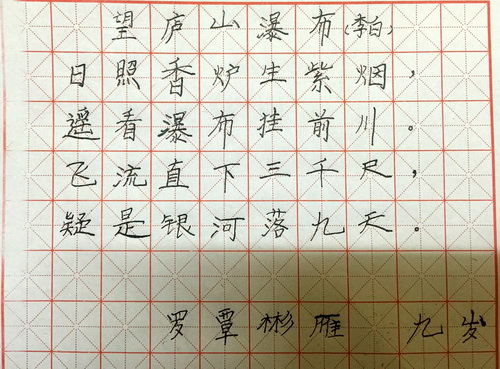 望庐山瀑布(李白)
日照香炉生紫烟，
遥看瀑布挂前川。
飞流直下三千尺，
疑是银河落九天。
罗覃彬雁 九岁